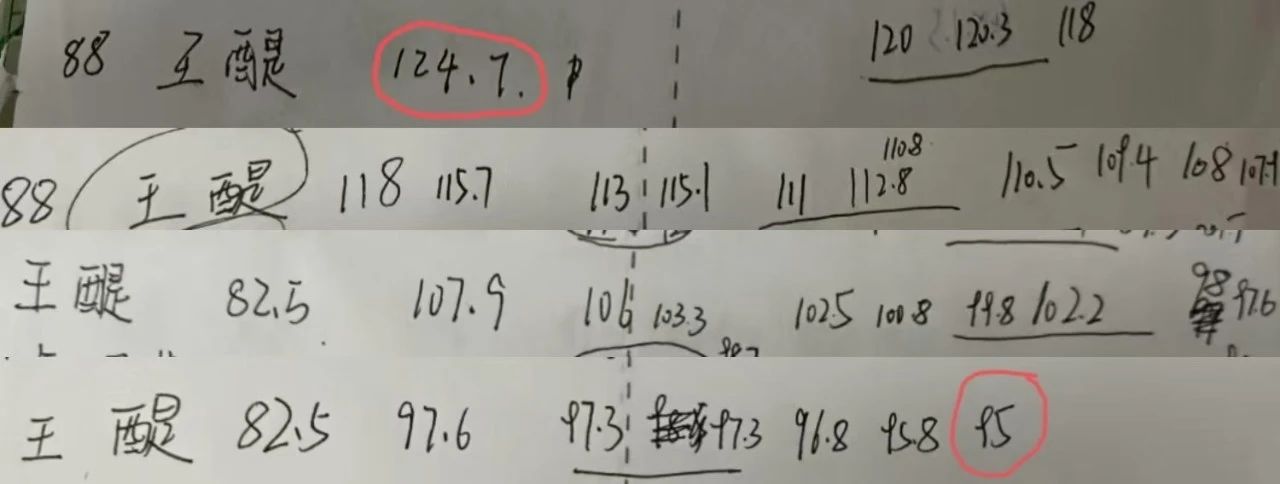 88 王醒 124.7. 120 120.3 118
110.8
88 王醒 118 115.7 113 115.1 111 112.8 110.5 109.4 108 107.9
98
王醒 82.5 107.9 106 103.3 102.5 100.8 99.8 102.2 97.6
王醒 82.5 97.6 97.3 97.3 96.8 95.8 95